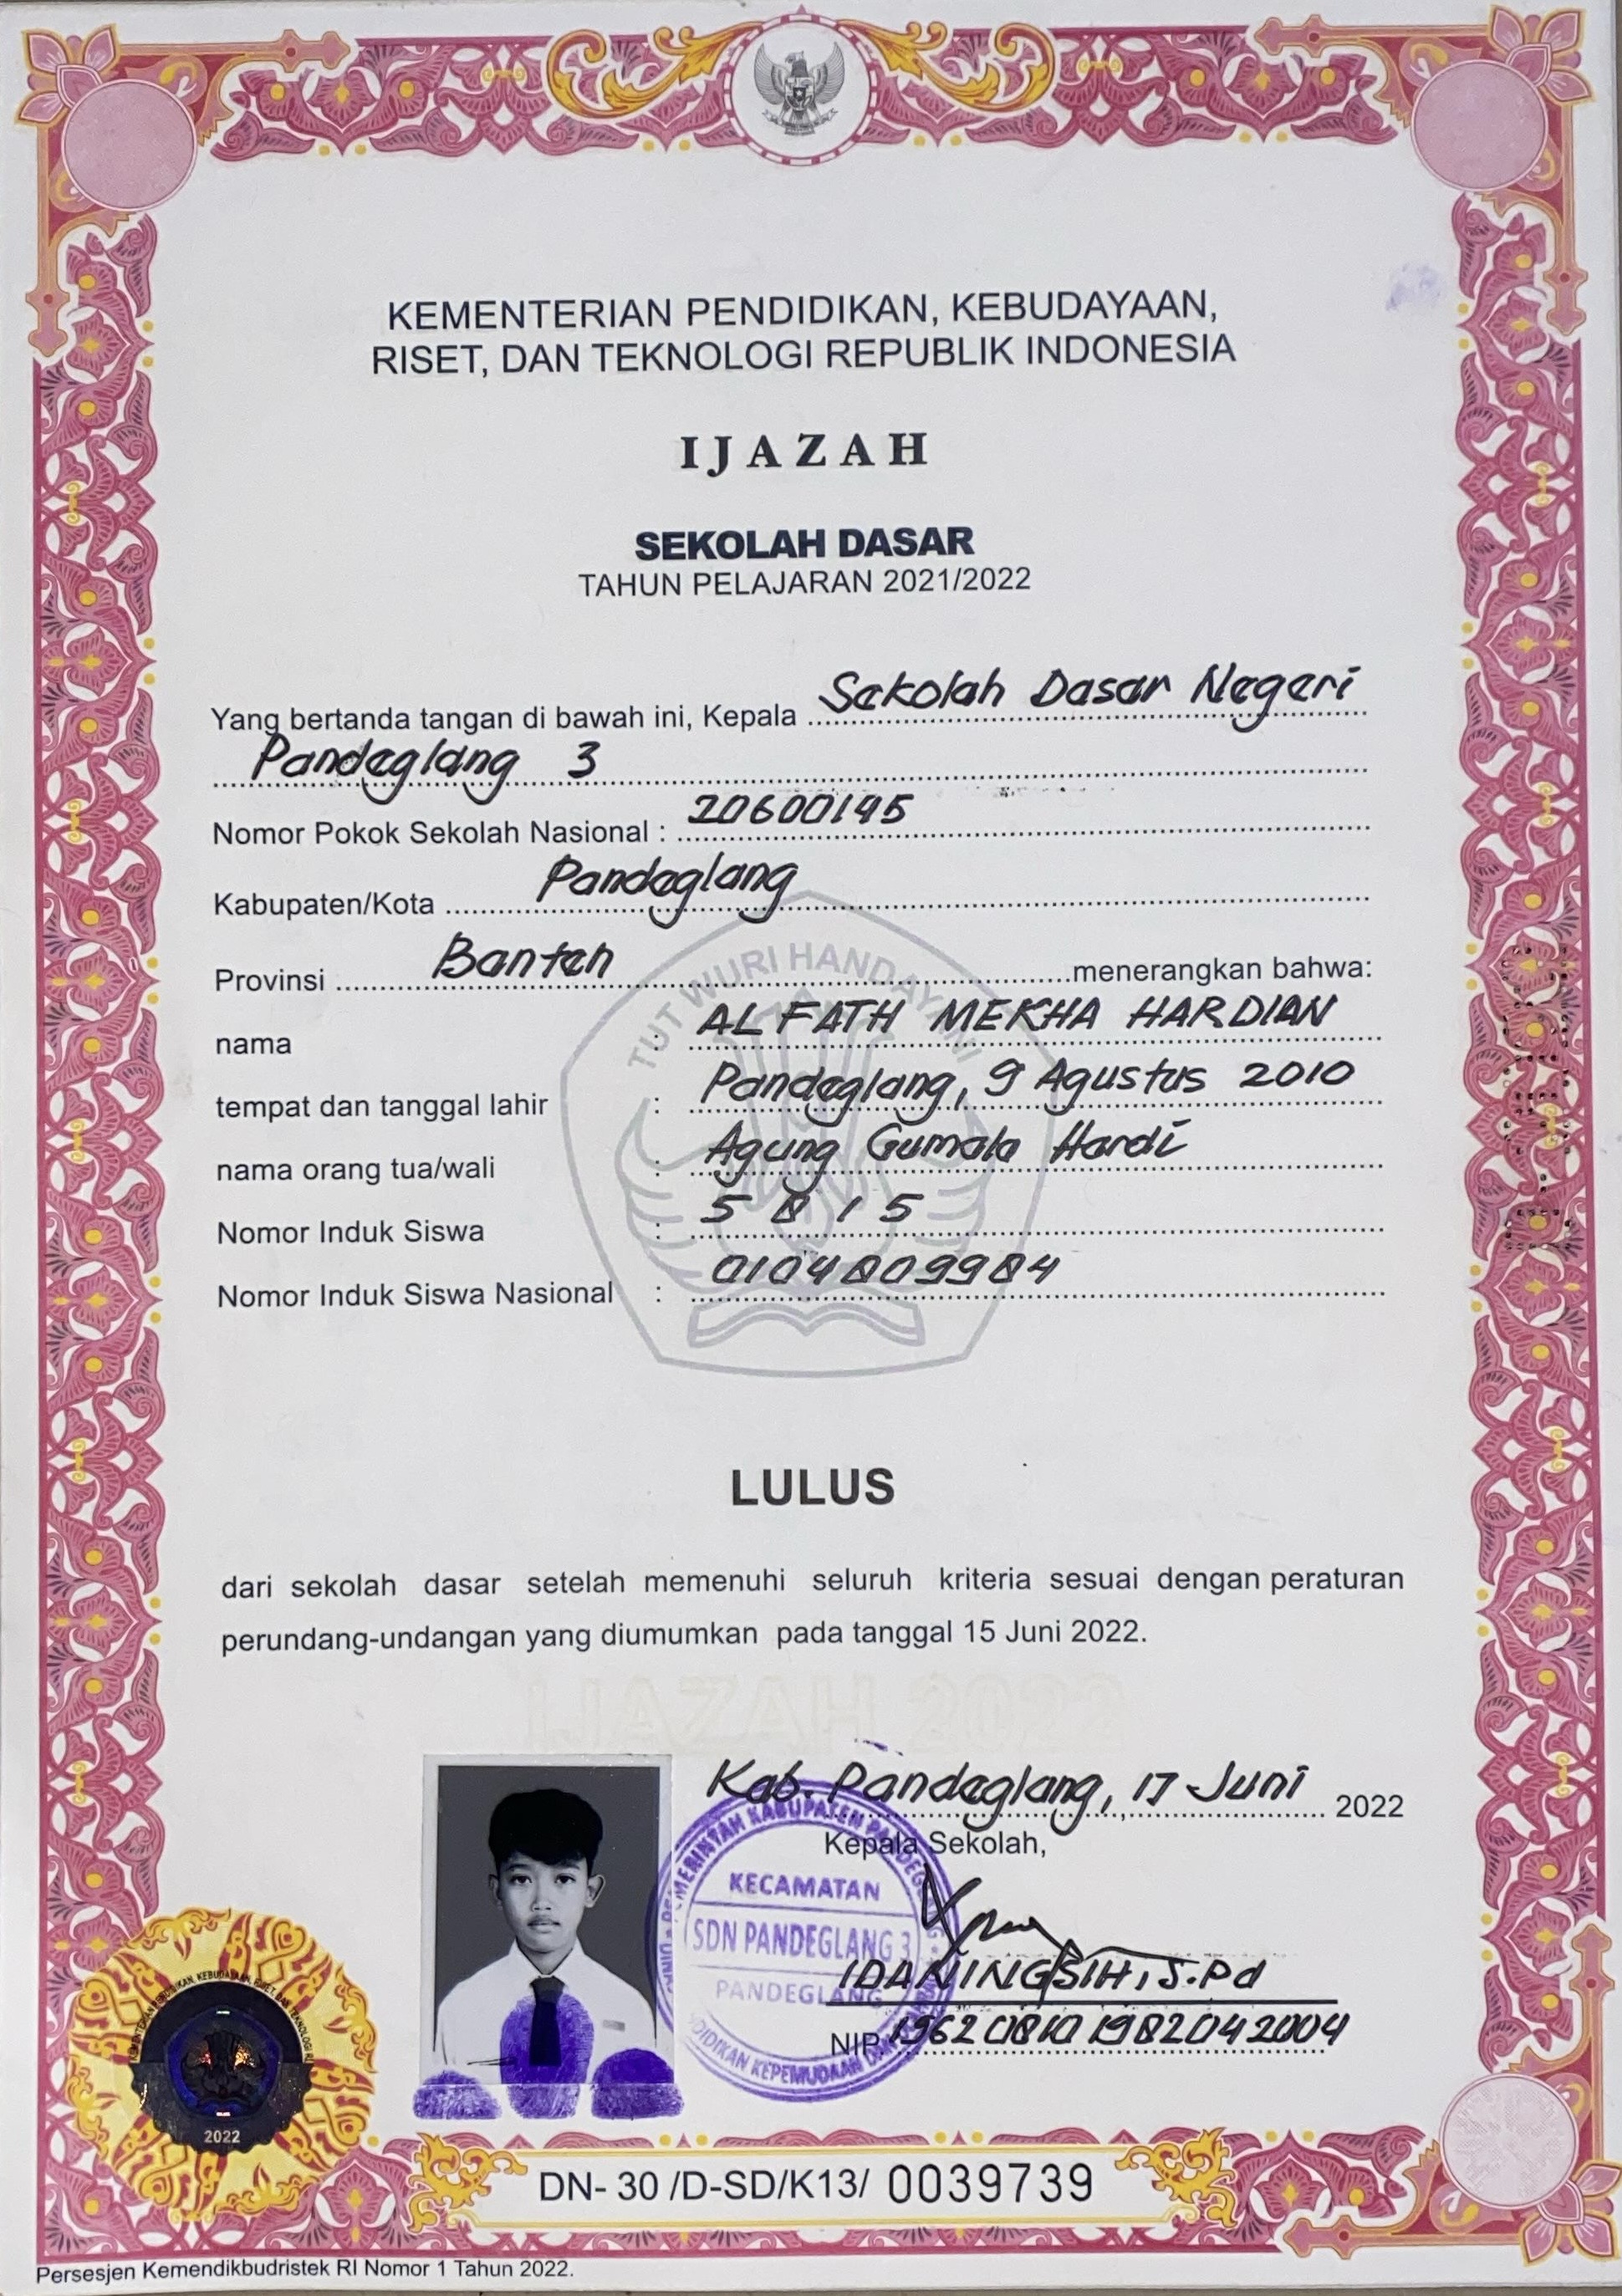 KEMENTERIAN PENDIDIKAN, KEBUDAYAAN,
RISET, DAN TEKNOLOGI REPUBLIK INDONESIA
IJAZAH
SEKOLAH DASAR
TAHUN PELAJARAN 2021/2022
Yang bertanda tangan di bawah ini, Kepala Sekolah Dasar Negeri
Pandeglang 3
Nomor Pokok Sekolah Nasional : 20600145
Kabupaten/Kota Pandeglang
Provinsi Banten menerangkan bahwa:
TUT WURI HANDAYANI
nama : AL FATH MEKHA HARDIAN
tempat dan tanggal lahir : Pandeglang, 9 Agustus 2010
nama orang tua/wali : Agung Gumala Hardi
Nomor Induk Siswa : 5815
Nomor Induk Siswa Nasional : 0104809984
LULUS
dari sekolah dasar setelah memenuhi seluruh kriteria sesuai dengan peraturan
perundang-undangan yang diumumkan pada tanggal 15 Juni 2022.
IJAZAH 2022
Kab. Pandeglang, 17 Juni 2022
Kepala Sekolah,
PEMERINTAH KABUPATEN PANDEGLANG
KECAMATAN
SDN PANDEGLANG 3
PANDEGLANG
IDA NINGSIH, S.Pd
NIP 196208101982042004
2022
DN- 30 /D-SD/K13/ 0039739
Persesjen Kemendikbudristek RI Nomor 1 Tahun 2022.